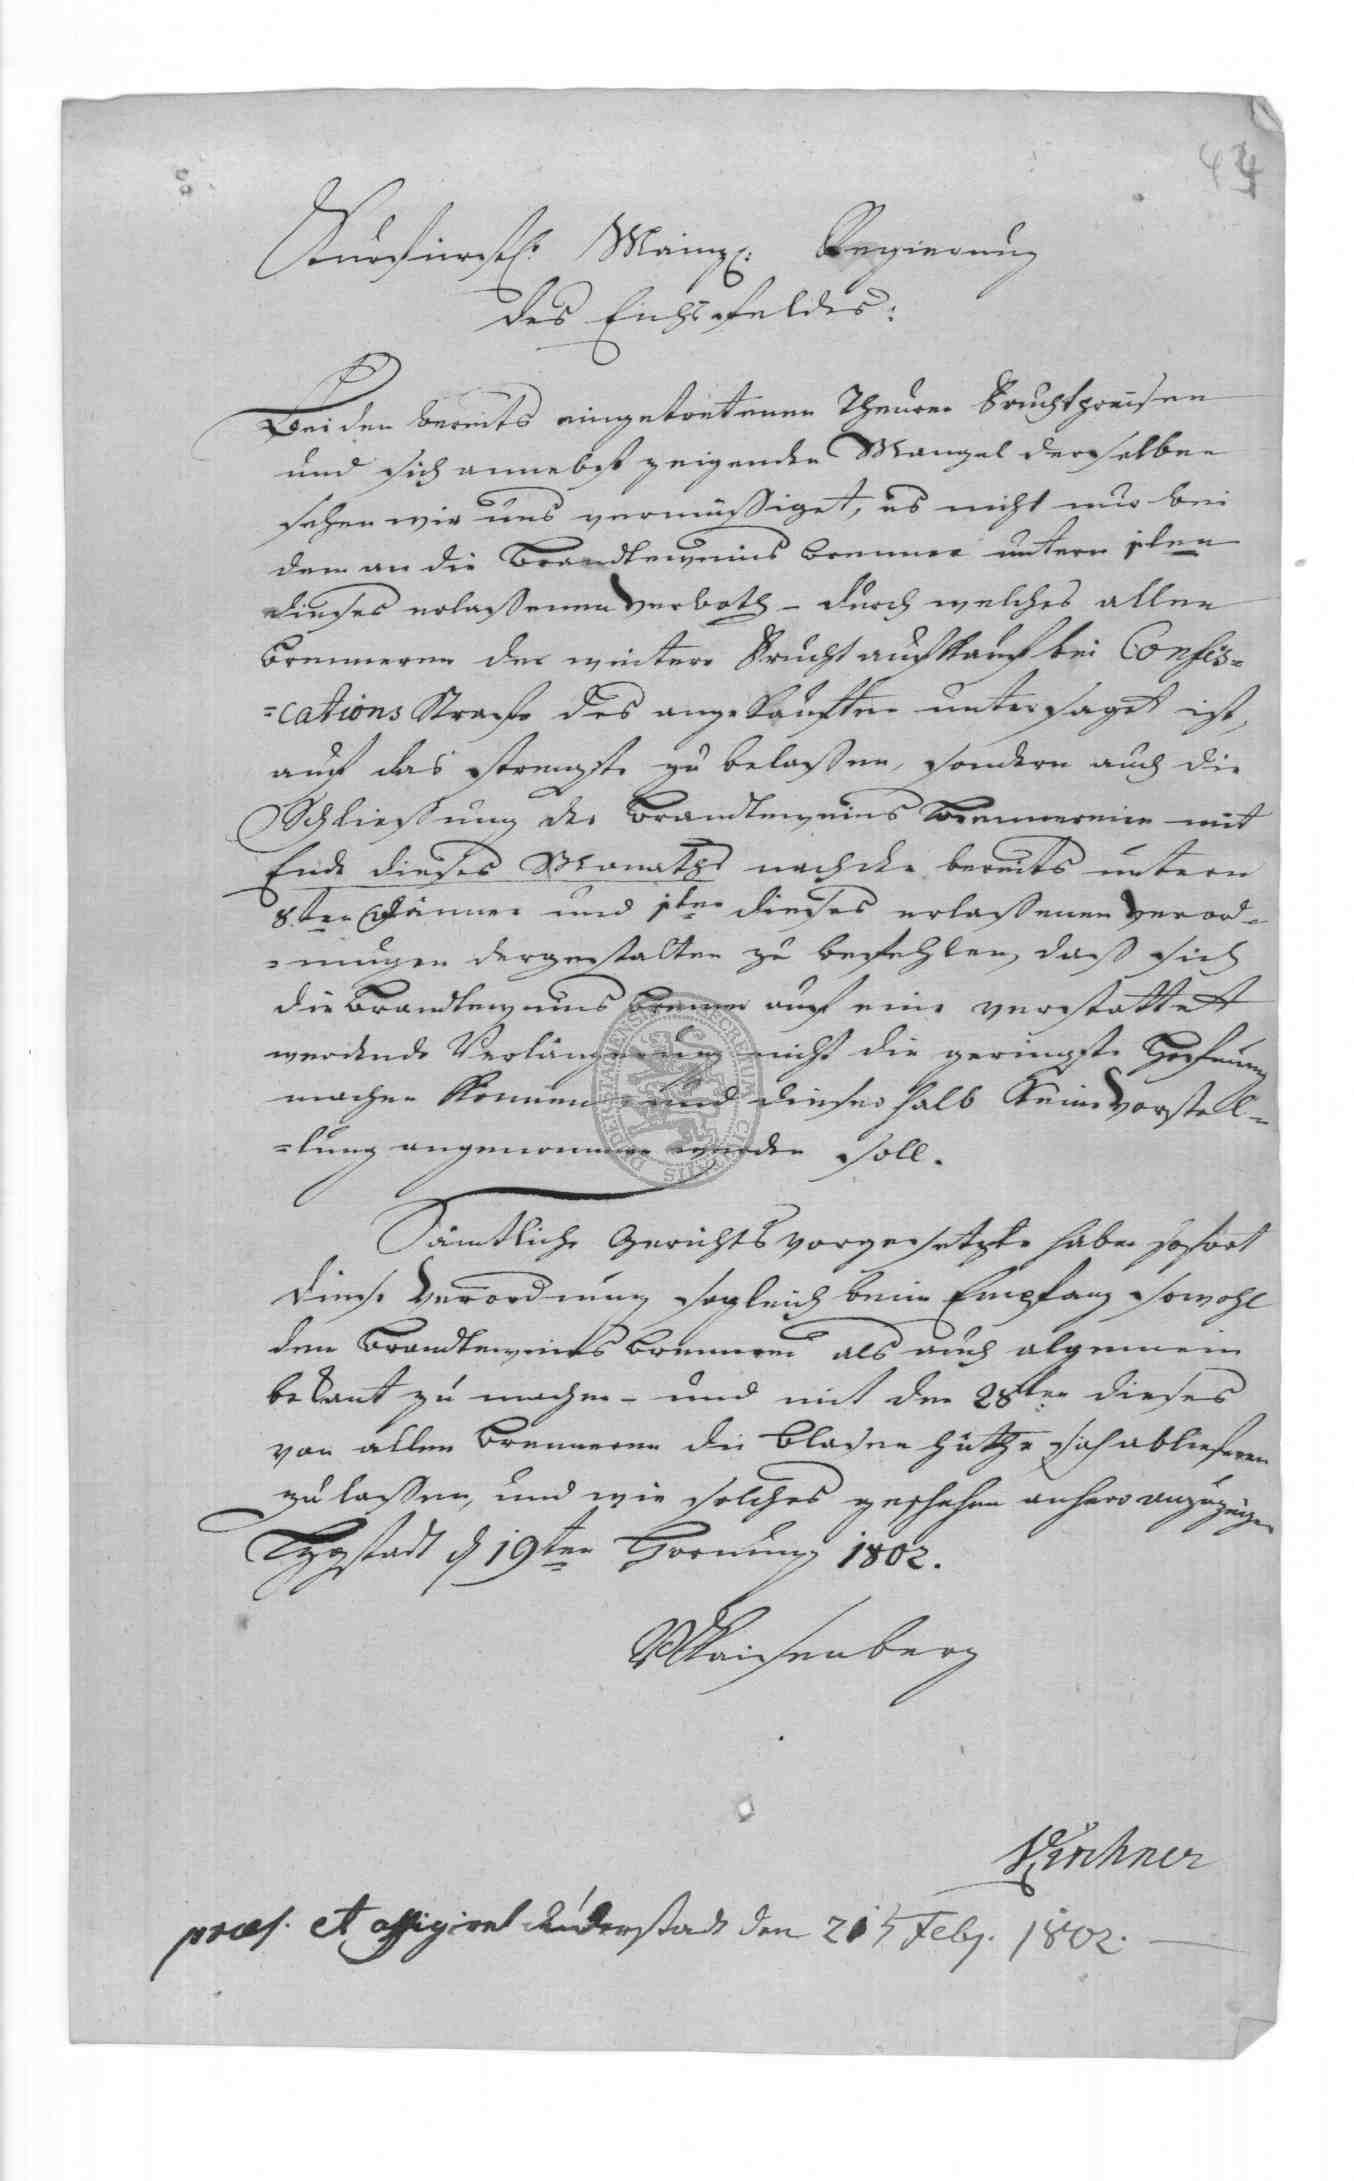 44
Kurfürstl: Mainz: Regierung
des Eichsfeldes:
Bei den bereits eingetretenen Theuren Fruchtpreisen
und sich annebst zeigenden Mangel derselben
sehen wir uns vermüssiget, es nicht nur bei
dem an die Brandteweins brenner untern 1ten
dieses erlassenen Verboth – durch welches allen
brenneren der weitere Fruchtaufkauf bei Confis=
=cations Strafe des angekauften untersaget ist,
auf das strengste zu belassen, sondern auch die
Schliessung der Brandteweins Brennereien mit
Ende dieses Monaths nach den bereits untern
8ten Jänner und 1ten dieses erlassenen Verord=
=nungen dergestalten zu befehlen, dass sich
die Brandteweins brenner auf eine verstattet
werdende Verlängerung nicht die geringste Hofnung
machen können und dieserhalb keine Vorstel=
=lung angenommen werden soll.
Sämtliche Gerichts vorgesetzte haben sofort
diese Verordnung sogleich beim Empfang sowohl
den Brandteweins brenneren als auch algemein
bekant zu machen – und mit den 28ten dieses
von allen brenneren die blasen hüthe sich abliefern
zu lassen, und wie solches geschehen anhero anzuzeigen
Hgstadt d 19ten Hornung 1802.
Kaisenberg
Kirchner
præs. et affigirt duderstadt den 21t Feby. 1802.
DUDERSTADIENSIS SECRETUM CIVITATIS